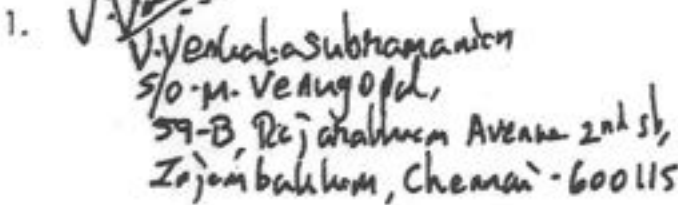 1. V.V
V.Venkatasubramanian
S/o.M.Venugopal,
59-B, Rajarathnam Avenue 2nd st,
Injambakkam, Chennai-600115